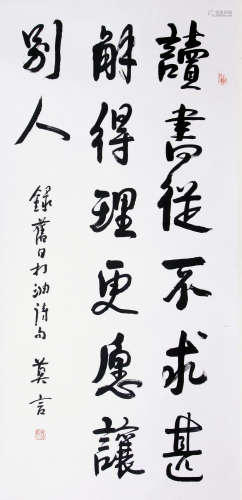 讀書從不求甚
解得理更愿讓
别人
錄舊日打油詩句 莫言